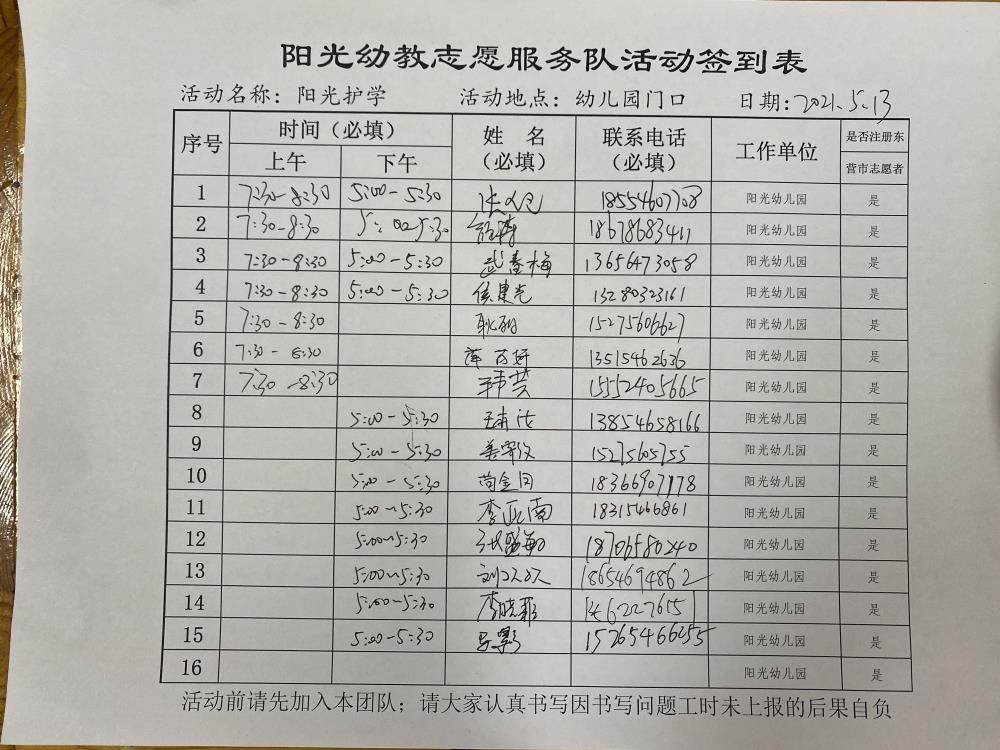 阳光幼教志愿服务队活动签到表
活动名称：阳光护学 活动地点：幼儿园门口 日期：2021.5.13
序号 时间（必填） 上午 下午 姓名（必填） 联系电话（必填） 工作单位 是否注册东营市志愿者
1 7:30-8:30 5:00-5:30 18554607708 阳光幼儿园 是
2 7:30-8:30 5:00-5:30 18678683411 阳光幼儿园 是
3 7:30-8:30 5:00-5:30 武春梅 13656473058 阳光幼儿园 是
4 7:30-8:30 5:00-5:30 侯建光 13280323161 阳光幼儿园 是
5 7:30-8:30 15275606627 阳光幼儿园 是
6 7:30-8:30 13515462636 阳光幼儿园 是
7 7:30-8:30 15552405665 阳光幼儿园 是
8 5:00-5:30 13854658166 阳光幼儿园 是
9 5:00-5:30 阳光幼儿园 是
10 5:00-5:30 18366907178 阳光幼儿园 是
11 5:00-5:30 李亚南 18315466861 阳光幼儿园 是
12 5:00-5:30 18706580240 阳光幼儿园 是
13 5:00-5:30 18654694862 阳光幼儿园 是
14 5:00-5:30 李晓菲 阳光幼儿园 是
15 5:00-5:30 15265466255 阳光幼儿园 是
16 阳光幼儿园 是
活动前请先加入本团队；请大家认真书写因书写问题工时未上报的后果自负